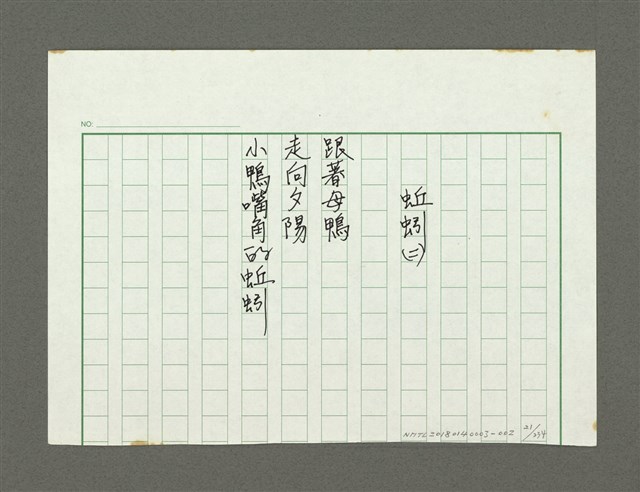 NO:
蚯蚓㈡
跟著母鴨
走向夕陽
小鴨嘴角的蚯蚓
NMTL20180140003-002
21/234